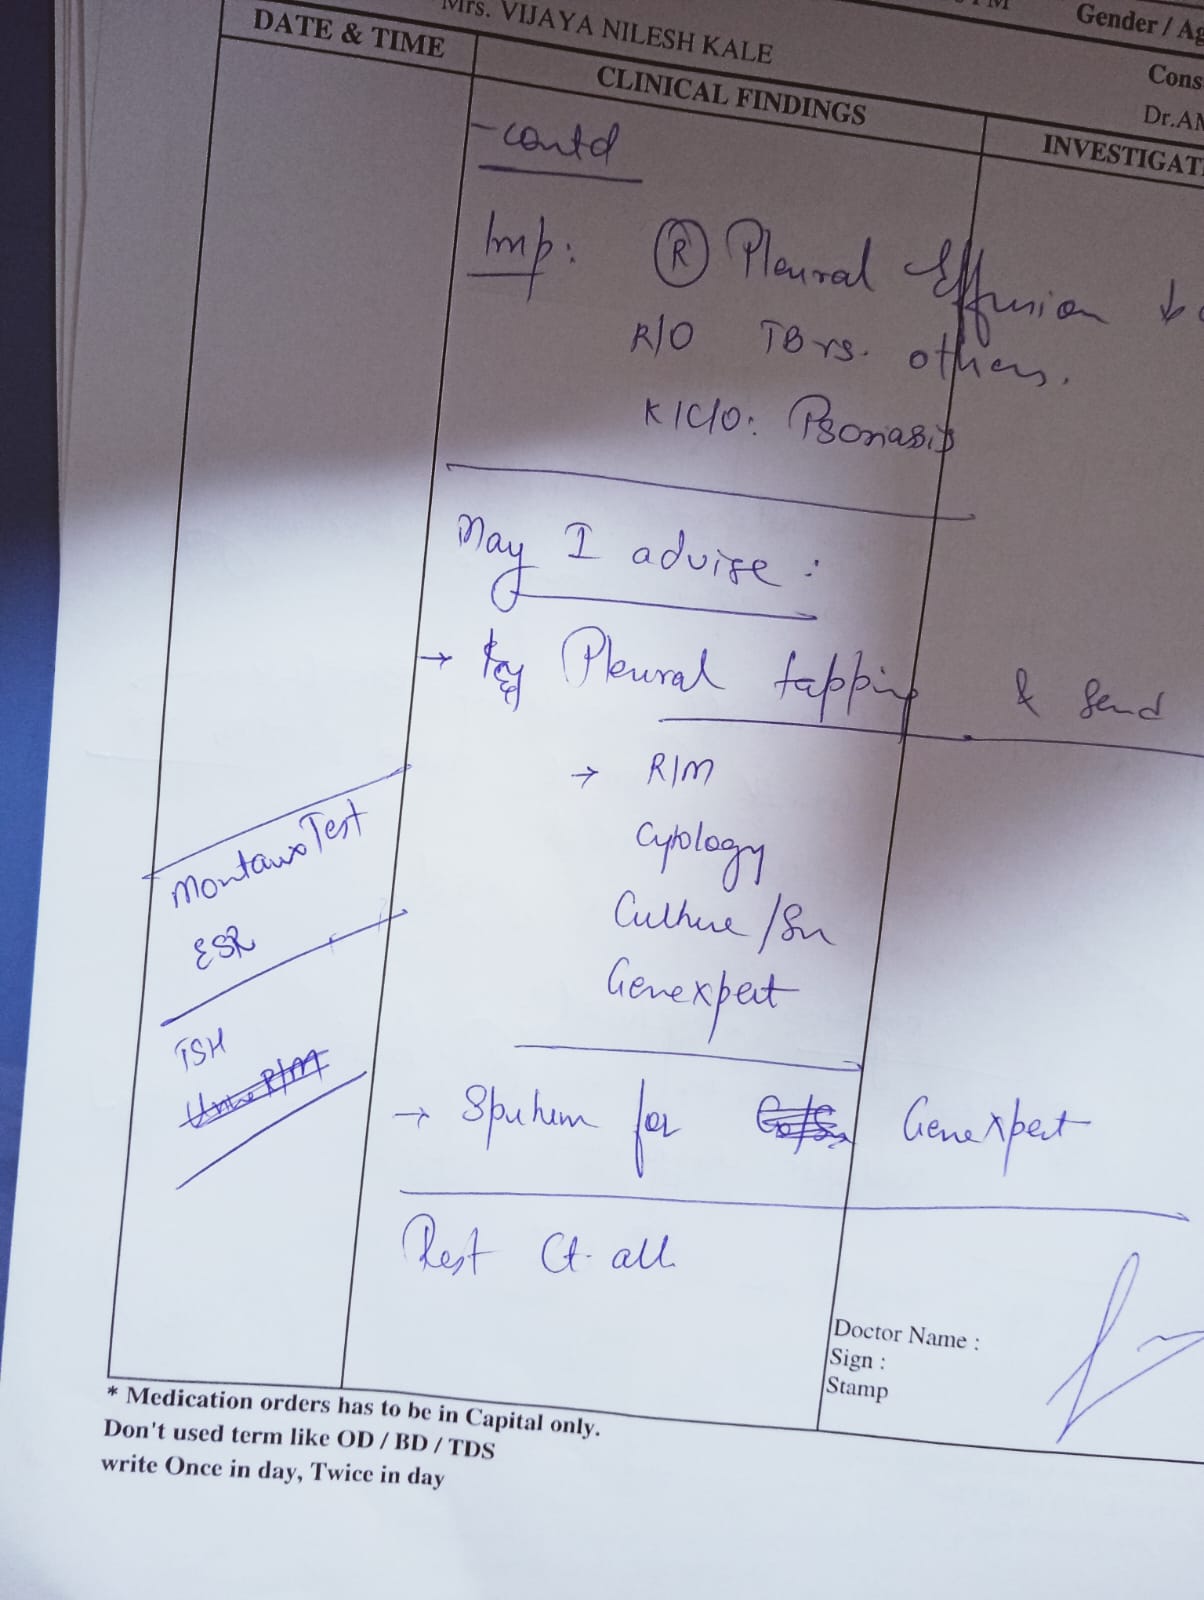 Mrs. VIJAYA NILESH KALE
Gender / Ag
Cons
Dr.AM
DATE & TIME
CLINICAL FINDINGS
INVESTIGAT
-contd
Imp: (R) Pleural Effusion
R/O TB vs. others.
K/C/O: Psoriasis
May I advise :
→ Pleural tapping & send
→ R/M
Cytology
Culture /Sn
Genexpert
Montaux Test
ESR
TSH
Urine R/M
→ Sputum for Genexpert
Rest Ct. all
Doctor Name :
Sign :
Stamp
* Medication orders has to be in Capital only.
Don't used term like OD / BD / TDS
write Once in day, Twice in day